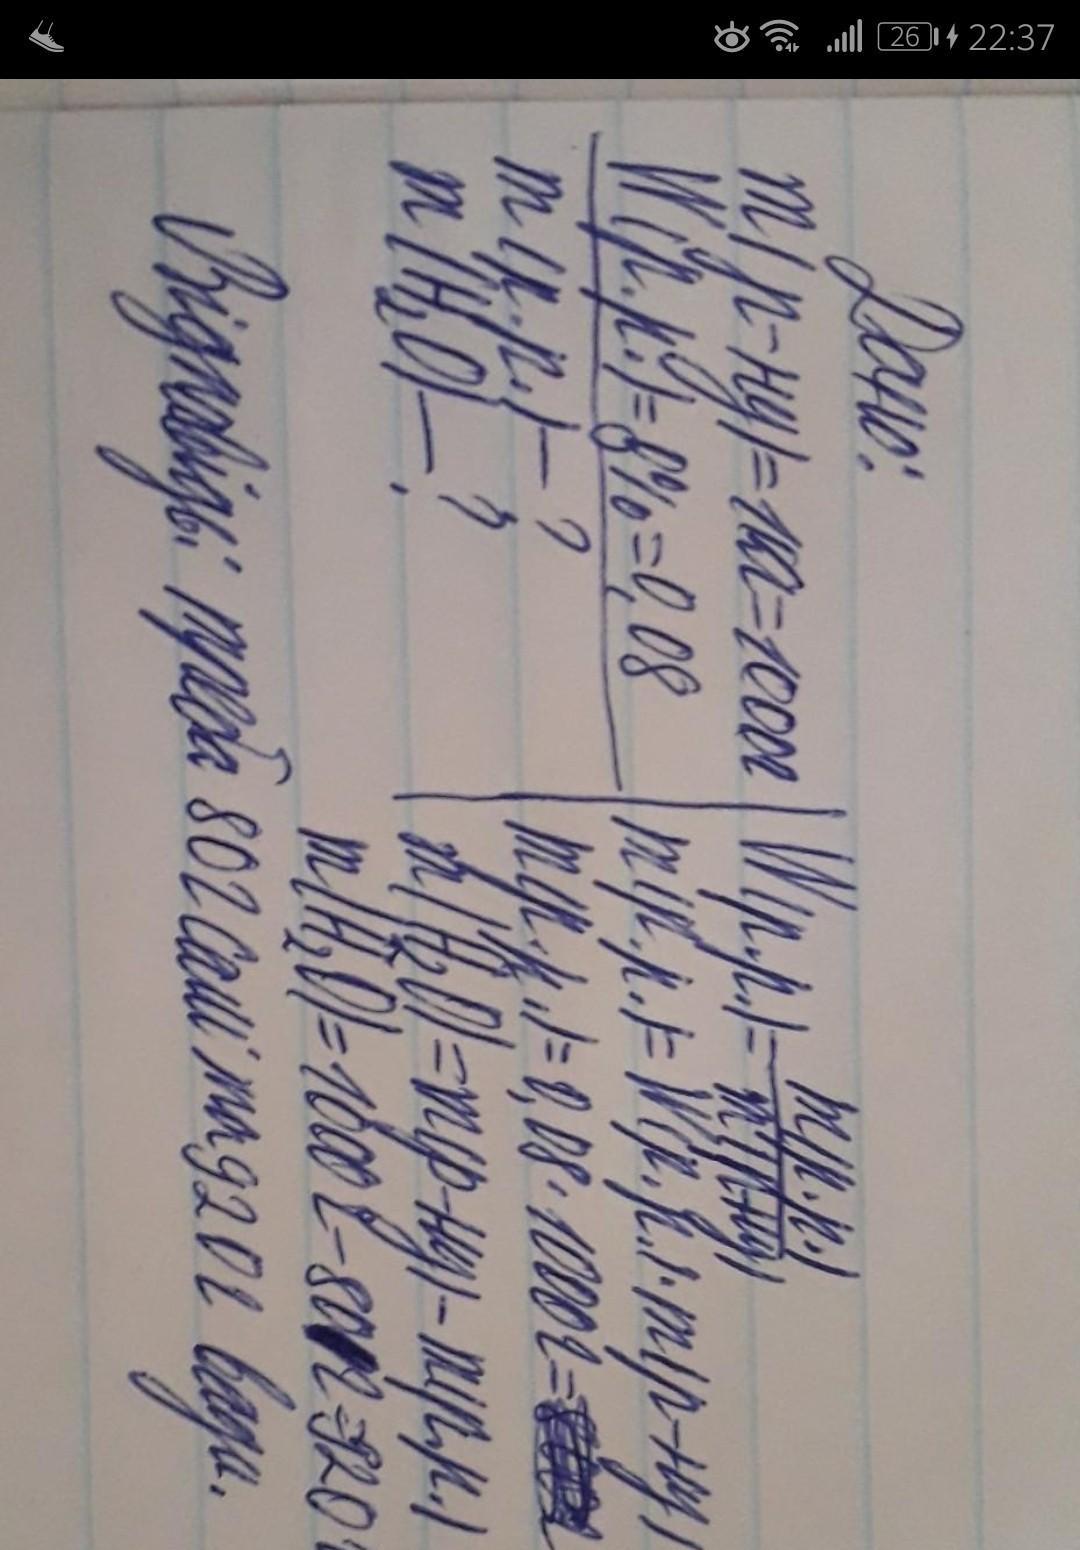 26 22:37
Дано:
m(р-ну)=1кг=1000г
W(р.р.)=8%=0,08
m(р.р.)-?
m(H₂O)-?
W(р.р.)=m(р.р.)/m(р-ну)
m(р.р.)=W(р.р.)·m(р-ну)
m(р.р.)=0,08·1000г=
m(H₂O)=m(р-ну)-m(р.р.)
m(H₂O)=1000г-80г=920г
Відповідь: треба 80г солі та 920г води.